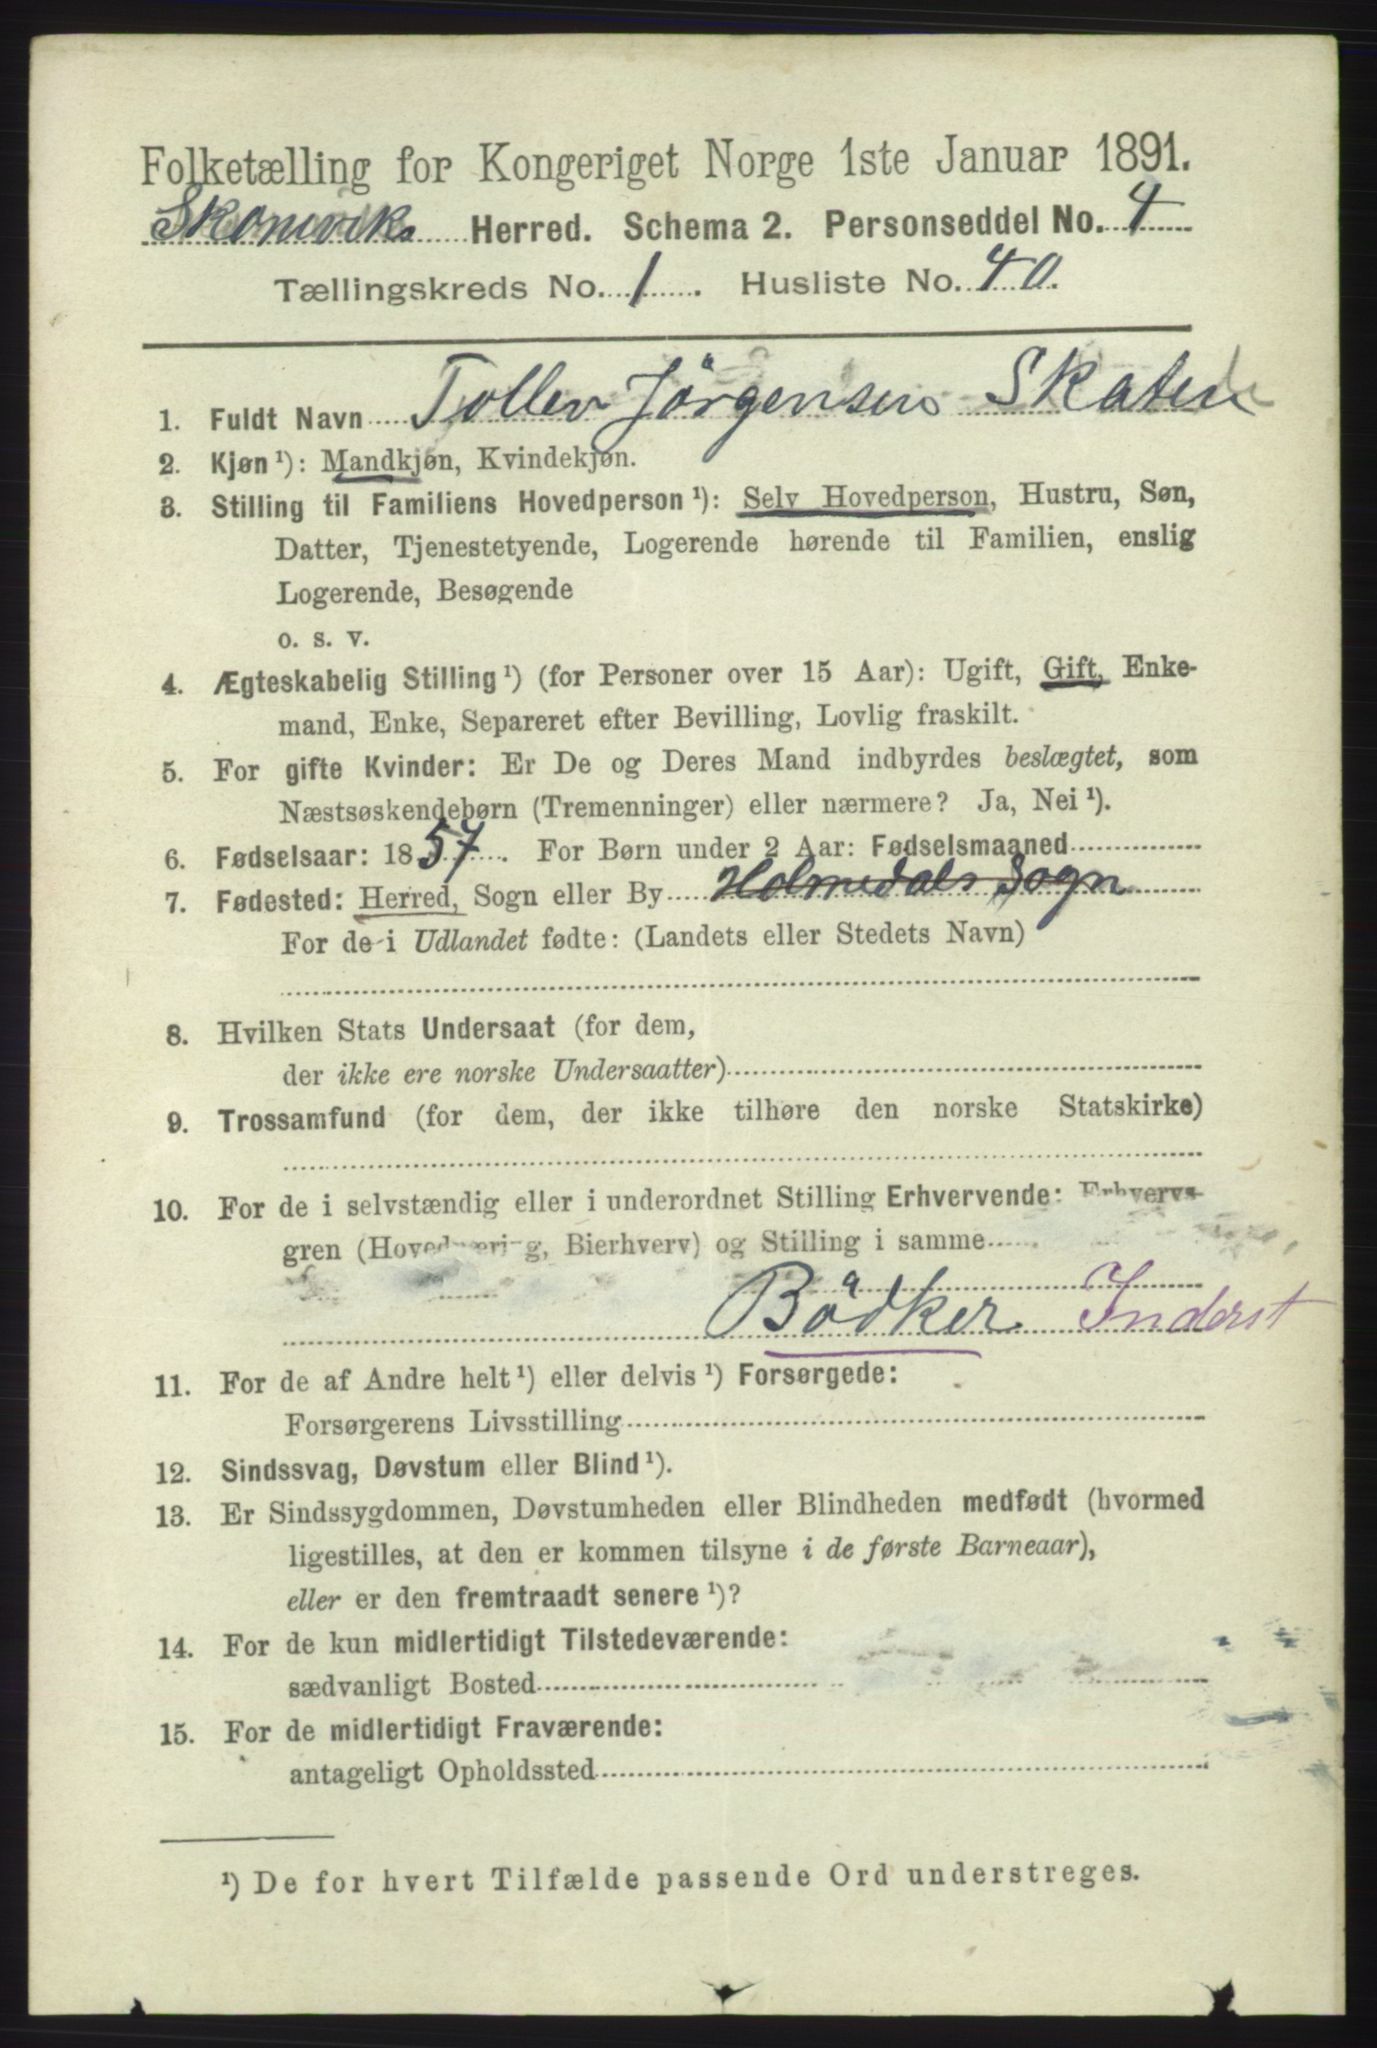 Folketælling for Kongeriget Norge 1ste Januar 1891.
Skoneviks Herred. Schema 2. Personseddel No. 4
Tællingskreds No. 1. Husliste No. 40.
1. Fuldt Navn Tollev Jörgensen Skaten
2. Kjøn ¹): Mandkjøn, Kvindekjøn.
3. Stilling til Familiens Hovedperson ¹): Selv Hovedperson, Hustru, Søn,
Datter, Tjenestetyende, Logerende hørende til Familien, enslig
Logerende, Besøgende
o. s. v.
4. Ægteskabelig Stilling ¹) (for Personer over 15 Aar): Ugift, Gift, Enke-
mand, Enke, Separeret efter Bevilling, Lovlig fraskilt.
5. For gifte Kvinder: Er De og Deres Mand indbyrdes beslægtet, som
Næstsøskendebørn (Tremenninger) eller nærmere? Ja, Nei ¹).
6. Fødselsaar: 1857. For Børn under 2 Aar: Fødselsmaaned
7. Fødested: Herred, Sogn eller By Holmedals Sogn
For de i Udlandet fødte: (Landets eller Stedets Navn)
8. Hvilken Stats Undersaat (for dem,
der ikke ere norske Undersaatter)
9. Trossamfund (for dem, der ikke tilhøre den norske Statskirke)
10. For de i selvstændig eller i underordnet Stilling Erhvervende: Erhvervs-
gren (Hovednæring, Bierhverv) og Stilling i samme
Bödker Inderst
11. For de af Andre helt ¹) eller delvis ¹) Forsørgede:
Forsørgerens Livsstilling
12. Sindssvag, Døvstum eller Blind ¹).
13. Er Sindssygdommen, Døvstumheden eller Blindheden medfødt (hvormed
ligestilles, at den er kommen tilsyne i de første Barneaar),
eller er den fremtraadt senere ¹)?
14. For de kun midlertidigt Tilstedeværende:
sædvanligt Bosted
15. For de midlertidigt Fraværende:
antageligt Opholdssted
¹) De for hvert Tilfælde passende Ord understreges.